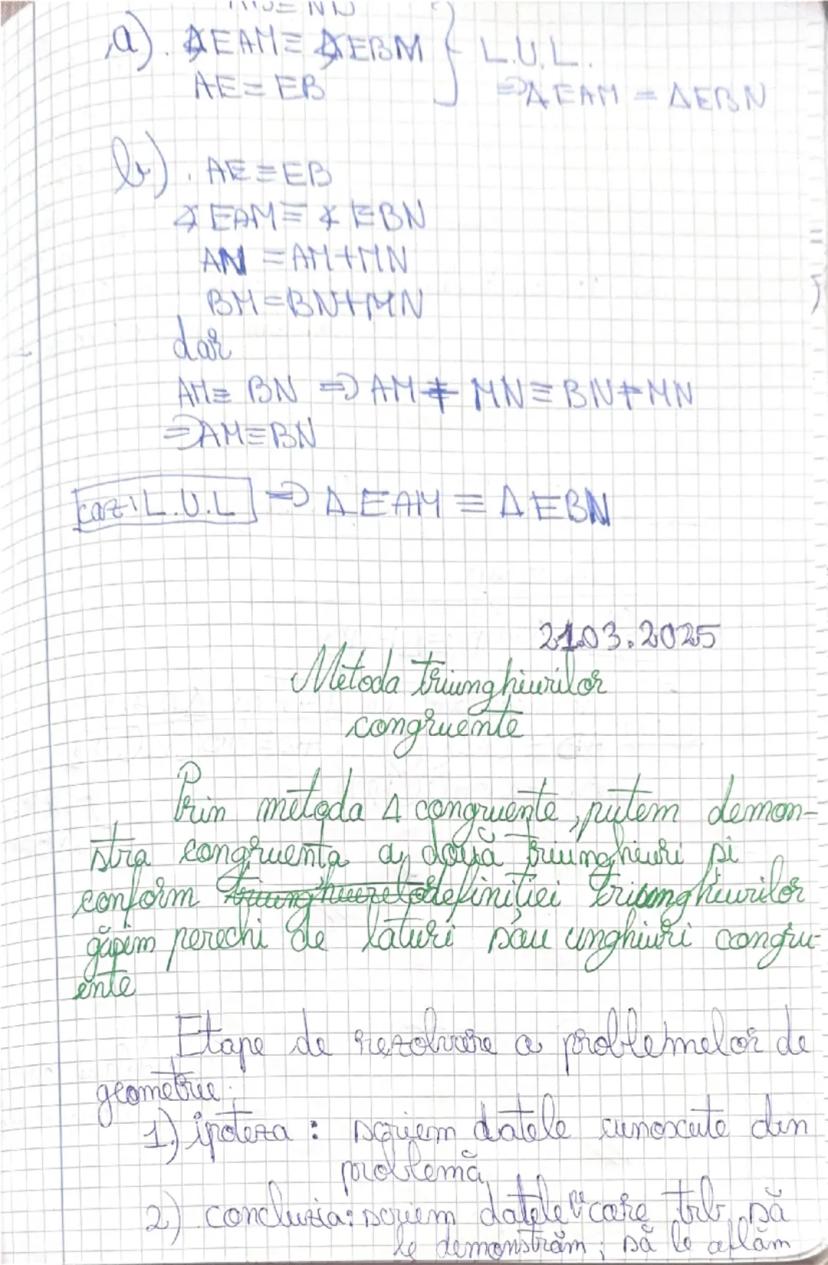 a). ∢EAM≡ ∢EBM } L.U.L.
AE=EB ⇒ΔEAM = ΔEBN
b). AE≡EB
∢EAM≡ ∢EBN
AN =AM+MN
BM=BN+MN
dar
AM≡ BN ⇒ AM+ MN≡BN+MN
⇒AM≡BN
caz: L.U.L ⇒ ΔEAM ≡ ΔEBN
21.03.2025
Metoda triunghiurilor
congruente
Prin metoda Δ congruente, putem demon-
stra congruența a două triunghiuri și
conform definiției triunghiurilor
găsim perechi de laturi sau unghiuri congru-
ente
Etape de rezolvare a problemelor de
geometrie:
1) ipoteza: scriem datele cunoscute din
problemă
2) concluzia: scriem datele care trb să
le demonstrăm; să le aflăm